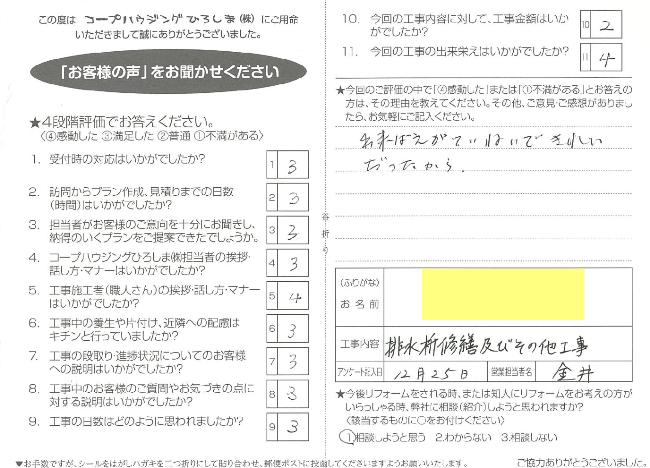 この度は コープハウジングひろしま(株) にご用命
いただきまして誠にありがとうございました。
「お客様の声」をお聞かせください
★4段階評価でお答えください。
〈④感動した ③満足した ②普通 ①不満がある〉
1. 受付時の対応はいかがでしたか? 1 3
2. 訪問からプラン作成、見積りまでの日数
(時間)はいかがでしたか? 2 3
3. 担当者がお客様のご意向を十分にお聞きし、
納得のいくプランをご提案できたでしょうか。 3 3
4. コープハウジングひろしま㈱担当者の挨拶・
話し方・マナーはいかがでしたか? 4 3
5. 工事施工者(職人さん)の挨拶・話し方・マナー
はいかがでしたか? 5 4
6. 工事中の養生や片付け、近隣への配慮は
キチンと行っていましたか? 6 3
7. 工事の段取り・進捗状況についてのお客様
への説明はいかがでしたか? 7 3
8. 工事中のお客様のご質問やお気づきの点に
対する説明はいかがでしたか? 8 3
9. 工事の日数はどのように思われましたか? 9 3
▼お手数ですが、シールをはがしハガキを二つ折りにして貼り合わせ、郵便ポストに投函してくださいますようお願いいたします。
谷折り
10. 今回の工事内容に対して、工事金額はいか
がでしたか? 10 2
11. 今回の工事の出来栄えはいかがでしたか? 11 4
★今回のご評価の中で「④感動した」または「①不満がある」とお答えの
方は、その理由を教えてください。その他、ご意見・ご感想がありまし
たら、お気軽にご記入ください。
出来ばえがていねいできれい
だったから.
(ふりがな)
お名前
工事内容 排水桝修繕及びその他工事
アンケート記入日 12月25日 営業担当者名 金井
★今後リフォームをされる時、または知人にリフォームをお考えの方が
いらっしゃる時、弊社に相談(紹介)しようと思われますか?
〈該当するものに○をお付けください〉
①相談しようと思う 2.わからない 3.相談しない
ご協力ありがとうございました。